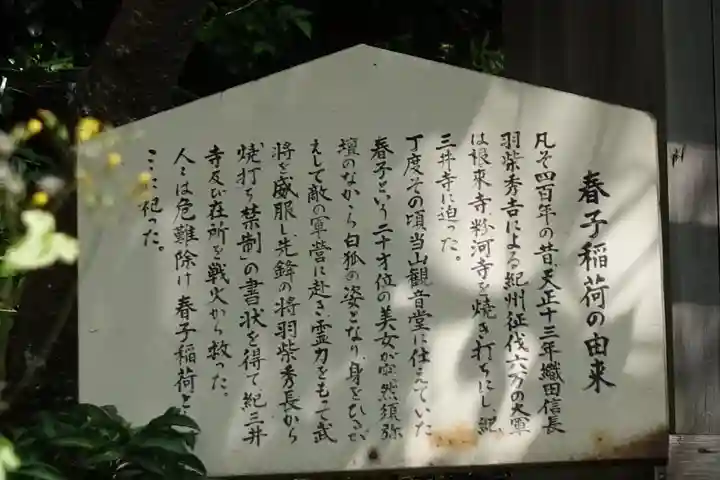 春子稲荷の由来
凡そ四百年の昔、天正十三年織田信長
羽柴秀吉による紀州征伐六万の大軍
は根来寺、粉河寺を焼き打ちにし、紀
三井寺に迫った。
丁度その頃当山観音堂に仕えていた
春子という二十才位の美女が突然須弥
壇のなから白狐の姿となり、身をひるが
えして敵の軍営に赴き、霊力をもって武
将を威服し、先鋒の将羽柴秀長から
「焼打ち禁制」の書状を得て紀三井
寺及び在所を戦火から救った。
人々は危難除け春子稲荷と
ここに祀った。